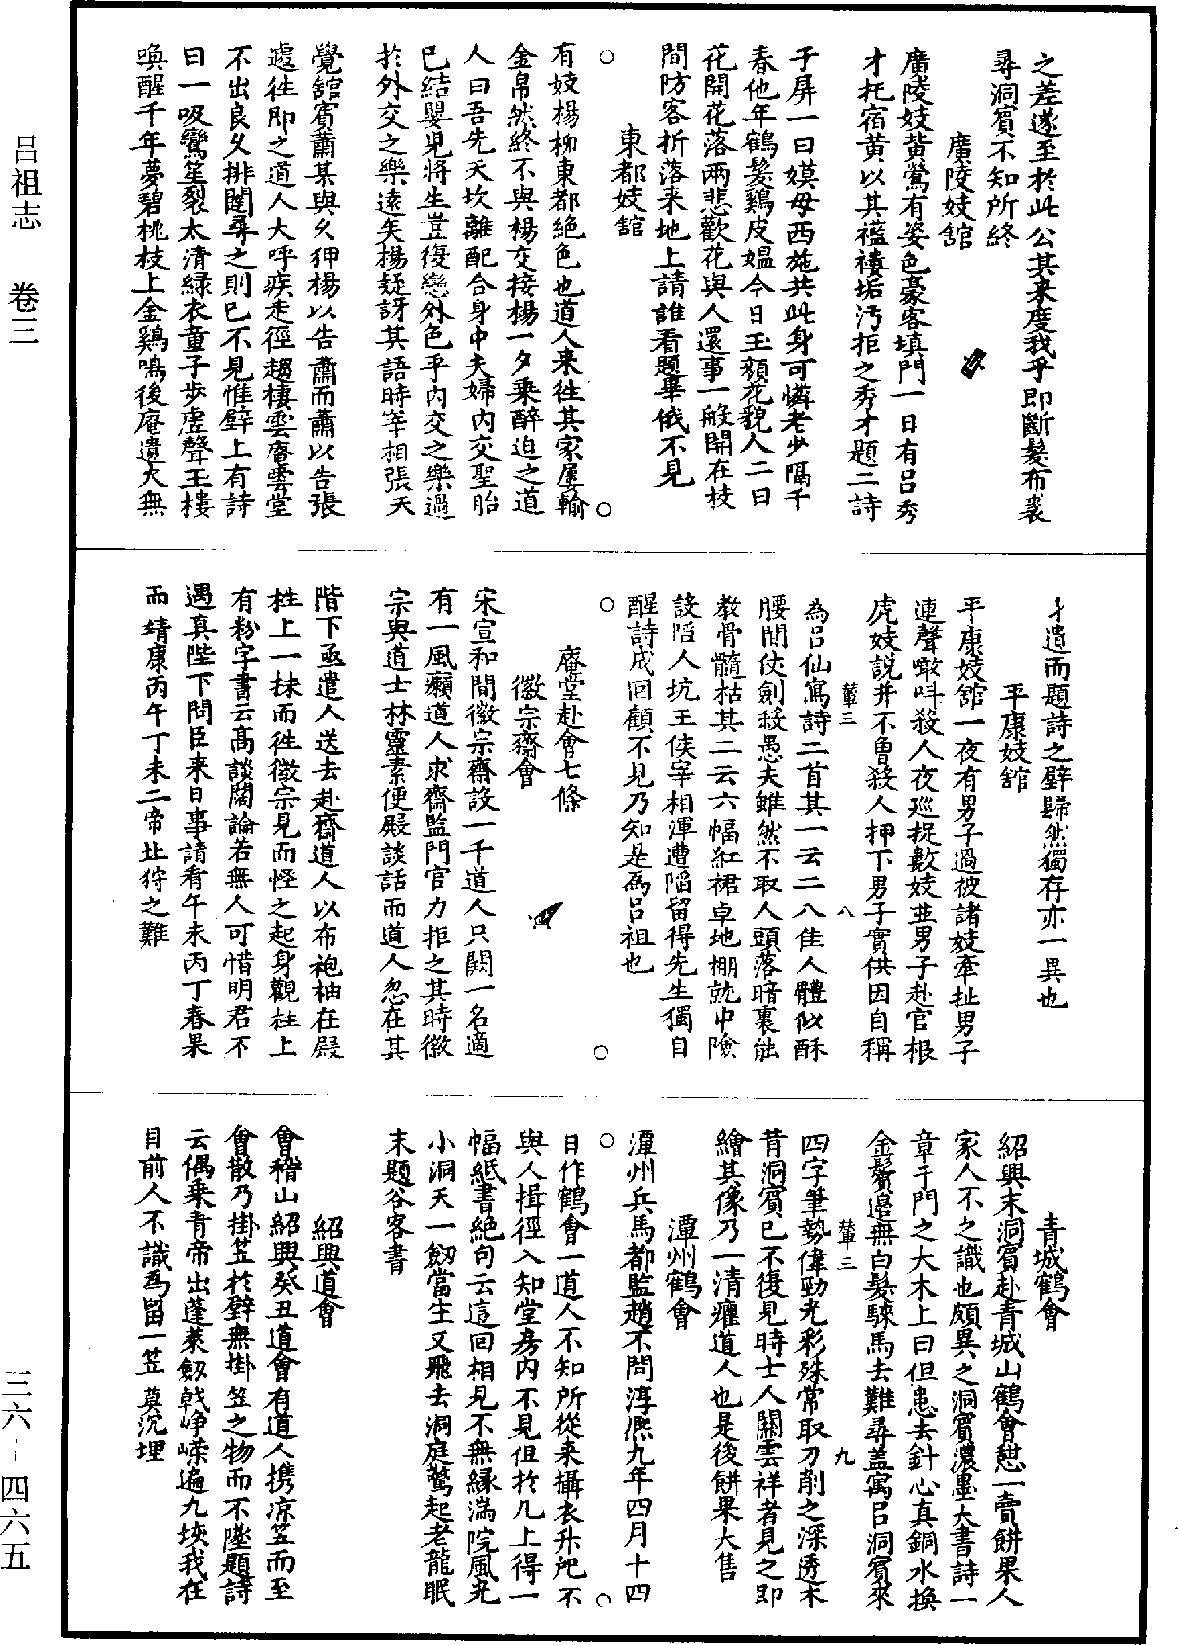 呂祖志 卷三
三六–四六五
之差遂至於此公其來度我乎即斷髮布裘
尋洞賓不知所終
廣陵妓舘
廣陵妓黃鶯有姿色豪客填門一日有呂秀
才托宿黃以其襤褸垢汚拒之秀才題二詩
于屏一曰嫫母西施共此身可憐老少隔千
春他年鶴髮鷄皮媼今日玉顏花貌人二曰
花開花落兩悲歡花與人還事一般開在枝
間防客折落来地上請誰看題畢俄不見
東都妓舘
有妓楊柳東都絕色也道人来徃其家屢輸
金帛然終不與楊交接楊一夕乘醉迫之道
人曰吾先天坎離配合身中夫婦内交聖胎
已結嬰児將生豈復戀外色乎内交之樂過
於外交之樂遠矣楊疑訝其語時宰相張天
覺舘賓蕭某與久狎楊以告蕭而蕭以告張
遽徃即之道人大呼疾走徑趨棲雲菴雲堂
不出良久排闥尋之則已不見惟壁上有詩
曰一吸鸞笙裂太清緑衣童子步虛聲玉樓
喚醒千年夢碧桃枝上金鷄鳴後庵遺火無
才遺而題詩之壁歸然獨存亦一異也
平康妓舘
平康妓舘一夜有男子過被諸妓牽扯男子
連聲噉呌殺人夜巡捉數妓並男子赴官根
虎妓說并不曽殺人押下男子實供因自稱
為吕仙寫詩二首其一云二八佳人體似酥
腰間仗劍殺愚夫雖然不取人頭落暗裏能
教骨髓枯其二云六幅紅裙卓地棚就中險
設陷人坑王侯宰相渾遭陷留得先生獨自
醒詩成回顧不見乃知是為呂祖也
菴堂赴會七條
徽宗齋會
宋宣和間徽宗齋設一千道人只闕一名適
有一風癩道人求齋監門官力拒之其時徽
宗與道士林靈素便殿談話而道人忽在其
階下亟遣人送去赴齋道人以布袍袖在殿
柱上一抹而徃徽宗見而怪之起身觀柱上
有粉字書云高談闊論若無人可惜明君不
遇真陛下問臣来日事請看午未丙丁春果
而靖康丙午丁未二帝北狩之難
青城鶴會
紹興末洞賓赴青城山鶴會憩一賣餅果人
家人不之識也頗異之洞賓濃墨大書詩一
章于門之大木上曰但患去針心真銅水換
金鬢邊無白髮騋馬去難尋盖寓吕洞賓來
四字筆勢偉勁光彩殊常取刀削之深透木
背洞賓已不復見時士人關雲祥者見之即
繪其像乃一清癯道人也是後餅果大售
潭州鶴會
潭州兵馬都監趙不問淳熈九年四月十四
日作鶴會一道人不知所從来攝衣升𠫵不
與人揖徑入知堂房内不見但於几上得一
幅紙書絶句云這回相見不無緣滿院風光
小洞天一劒當生又飛去洞庭驚起老龍眠
末題谷客書
紹興道會
會稽山紹興癸丑道會有道人携凉笠而至
會散乃掛笠於壁無掛笠之物而不墜題詩
云偶乘青帝出蓬萊劒戟崢嶸遍九垓我在
目前人不識為留一笠莫沉埋